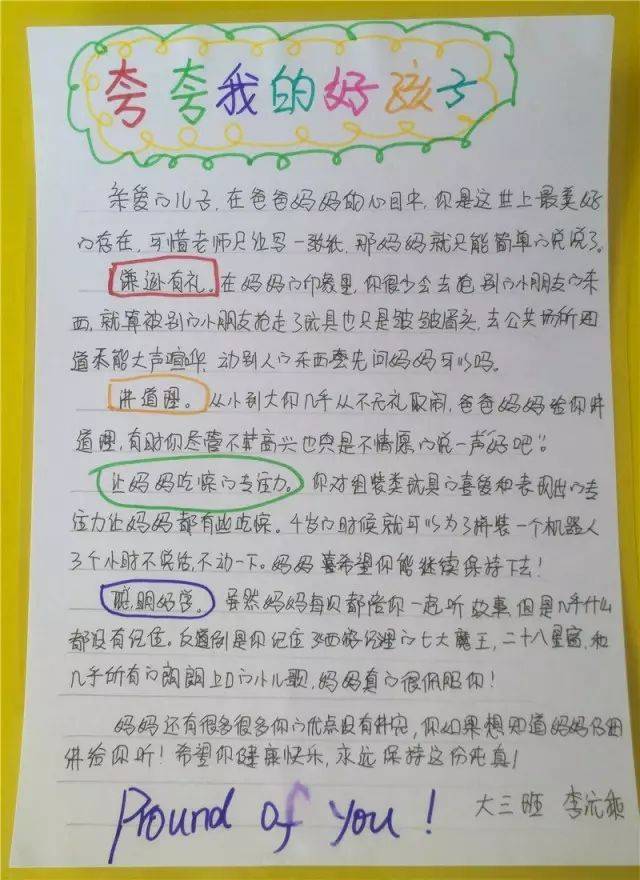 夸夸我的好孩子
亲爱的儿子,在爸爸妈妈的心目中,你是这世上最美好
的存在,可惜老师只让写一张纸,那妈妈就只能简单的说说了。
谦逊有礼。在妈妈的印象里,你很少会去抢别的小朋友的东
西,就算被别的小朋友抢走了玩具也只是皱皱眉头,去公共场所知
道不能大声喧哗,动别人的东西要先问妈妈可以吗。
讲道理。从小到大你几乎从不无礼取闹,爸爸妈妈给你讲
道理,有时你尽管不高兴也只是不情愿的说一声"好吧"。
让妈妈吃惊的专注力。你对组装类玩具的喜爱和表现出的专
注力让妈妈都有些吃惊。4岁的时候就可以为了拼装一个机器人
3个小时不说话,不动一下。妈妈喜希望你能继续保持下去!
聪明好学。虽然妈妈每次都陪你一起听故事,但是几乎什么
都没有记住。反道倒是你记住了西游记里的七大魔王,二十八星宿,和
几乎所有的朗朗上口的小儿歌,妈妈真的很佩服你!
妈妈还有很多很多你的优点没有讲完,你如果想知道妈妈仔细
讲给你听!希望你健康快乐,永远保持这份纯真!
Pround of You!
大三班 李沅